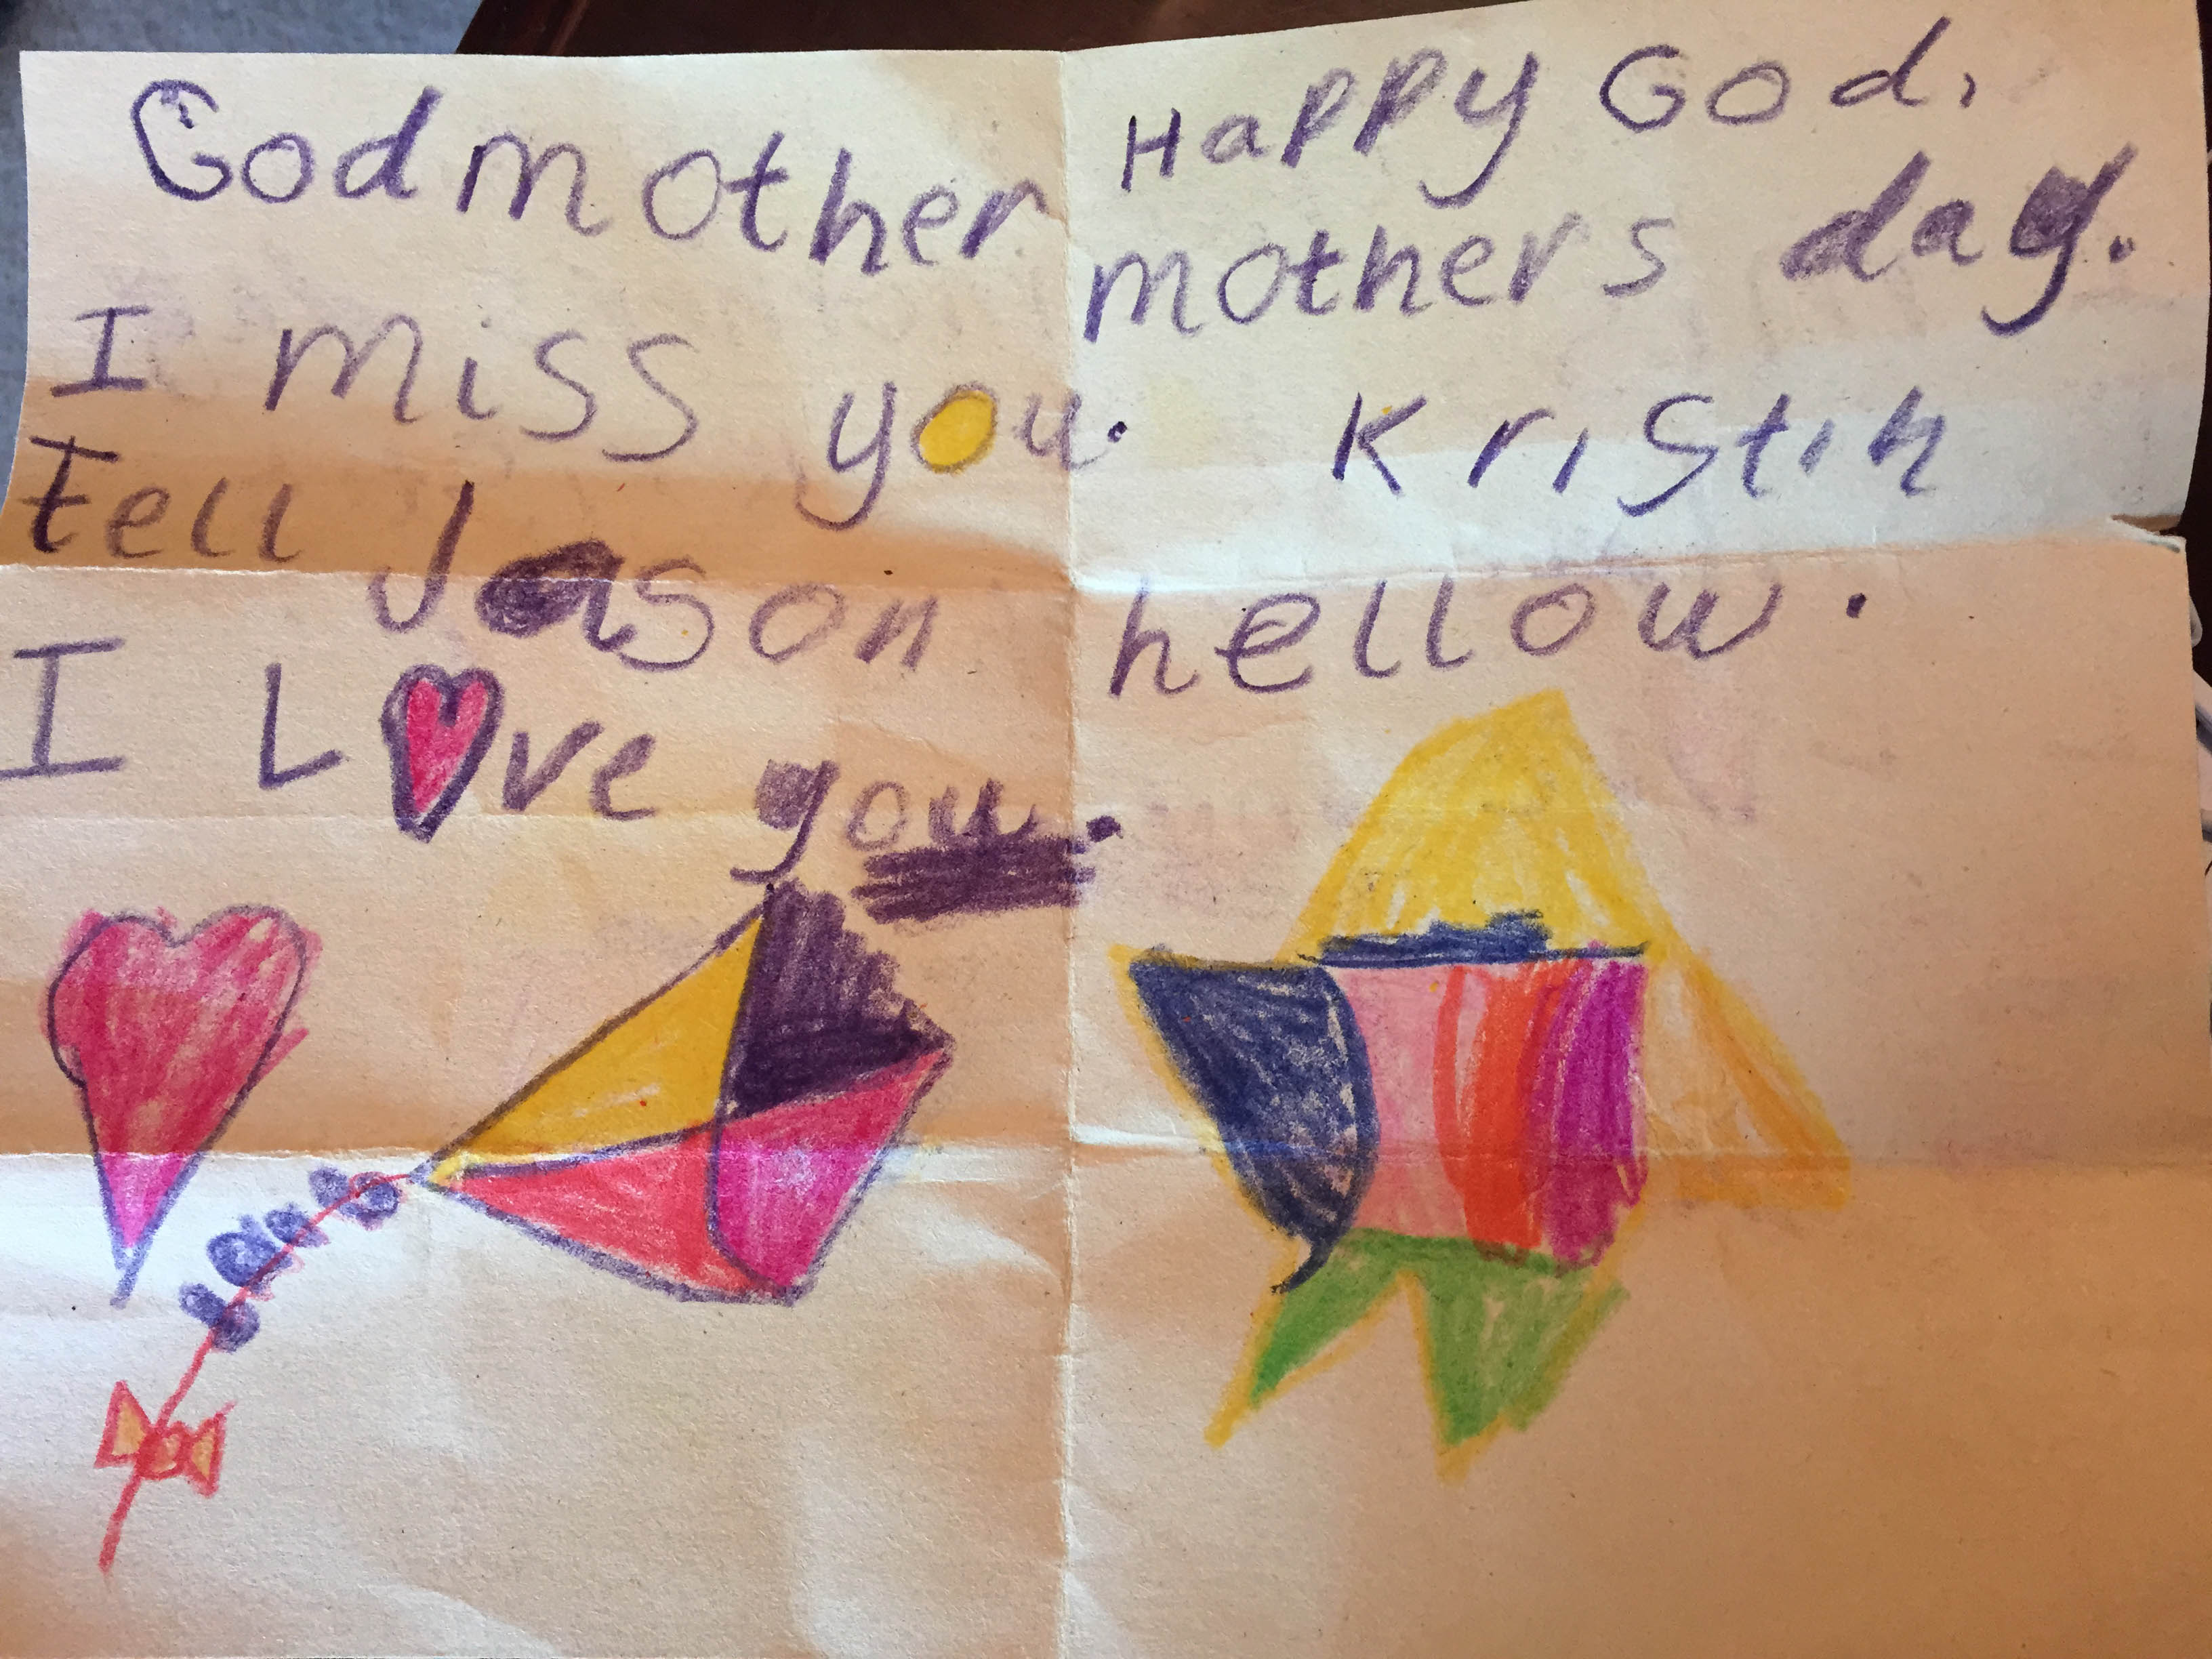 Godmother
I miss you.
tell Jason hellow.
I Love you.
Happy God,
mothers day.
Kristin